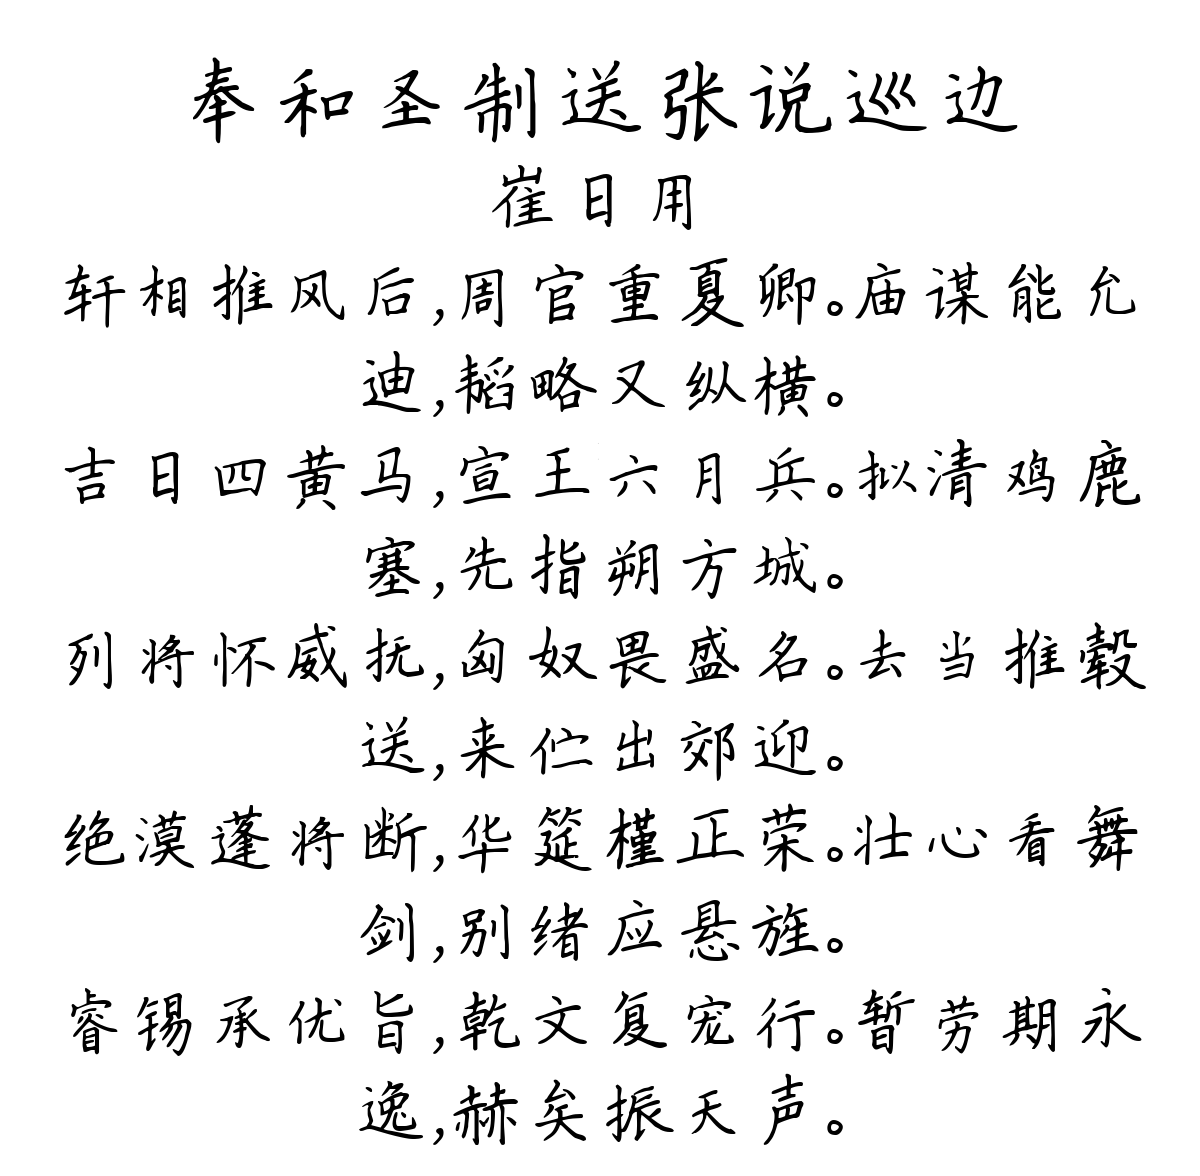 奉和圣制送张说巡边
崔日用
轩相推风后,周官重夏卿。庙谋能允
迪,韬略又纵横。
吉日四黄马,宣王六月兵。拟清鸡鹿
塞,先指朔方城。
列将怀威抚,匈奴畏盛名。去当推毂
送,来伫出郊迎。
绝漠蓬将断,华筵槿正荣。壮心看舞
剑,别绪应悬旌。
睿锡承优旨,乾文复宠行。暂劳期永
逸,赫矣振天声。